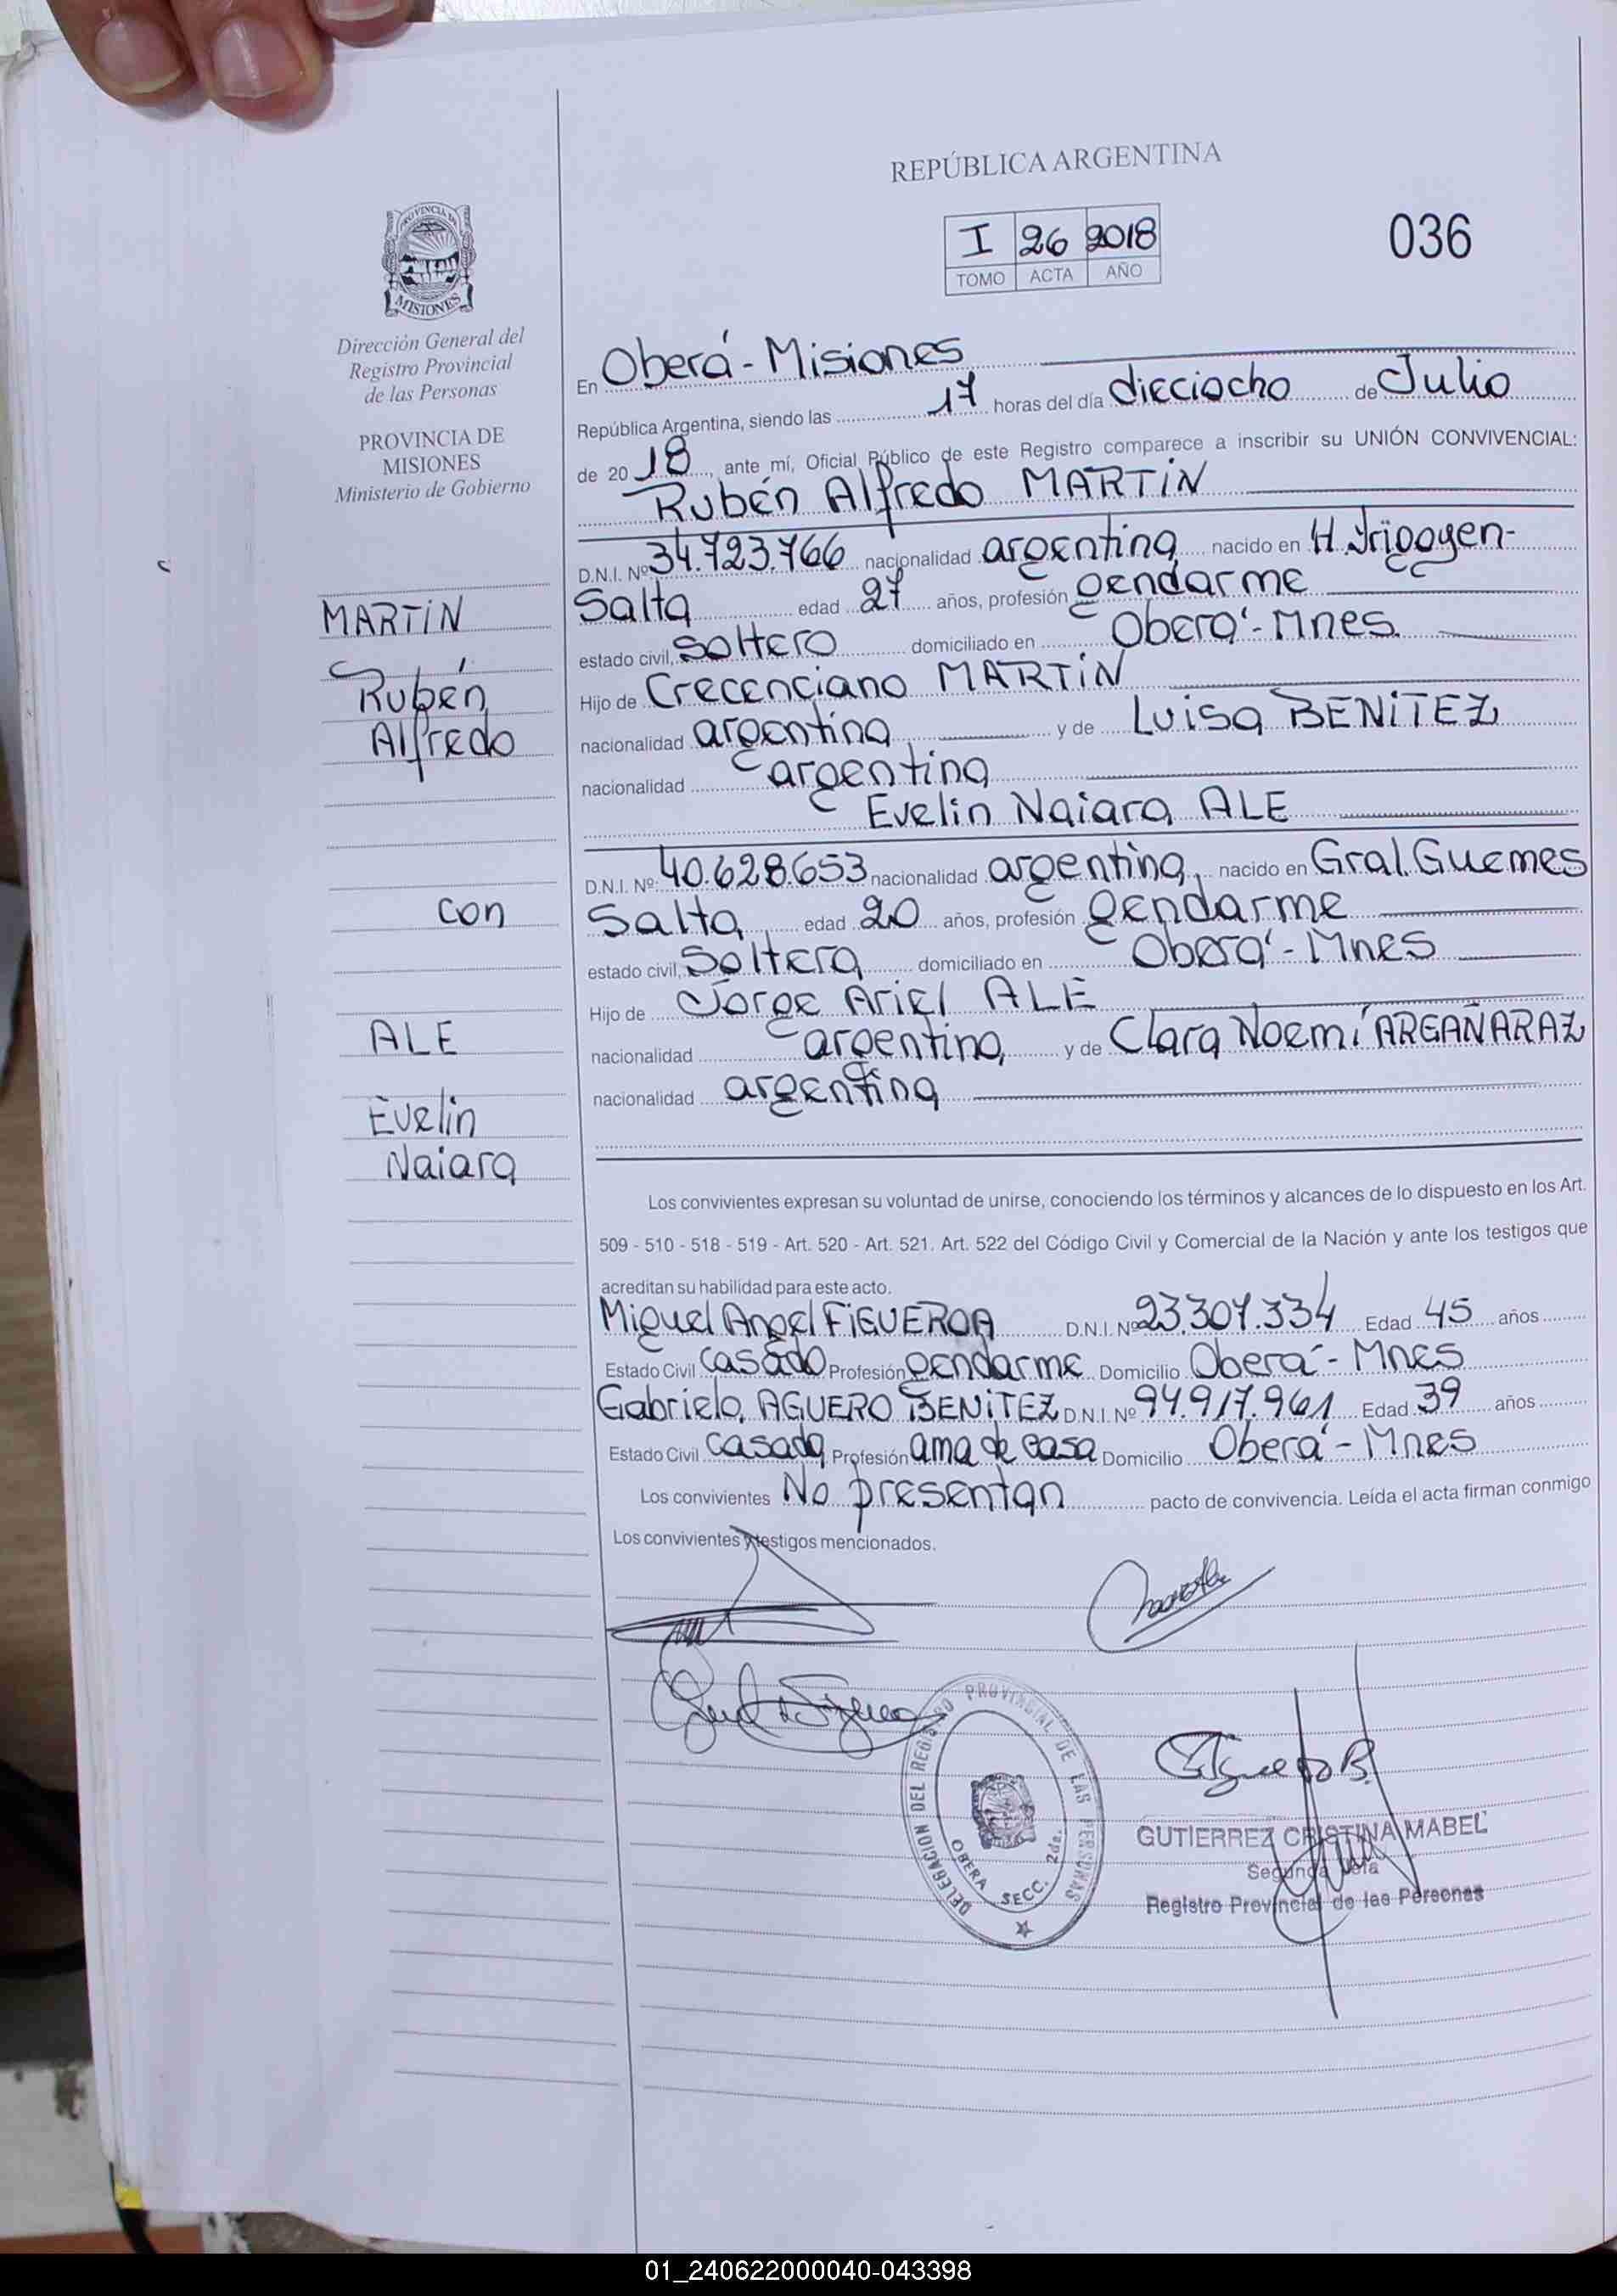 REPÚBLICA ARGENTINA
I 26 2018
TOMO ACTA AÑO
036
PROVINCIA DE
MISIONES
Dirección General del
Registro Provincial
de las Personas
PROVINCIA DE
MISIONES
Ministerio de Gobierno
MARTIN
Rubén
Alfredo
con
ALE
Evelin
Naiara
En Oberá - Misiones
República Argentina, siendo las 17 horas del día dieciocho de Julio
de 20 18, ante mí, Oficial Público de este Registro comparece a inscribir su UNIÓN CONVIVENCIAL:
Rubén Alfredo MARTIN
D.N.I. Nº 34.723.766 nacionalidad argentina nacido en H. Irigoyen-
Salta edad 27 años, profesión gendarme
estado civil, soltero domiciliado en Oberá - Mnes.
Hijo de Crecenciano MARTIN
nacionalidad argentina y de Luisa BENITEZ
nacionalidad argentina
Evelin Naiara ALE
D.N.I. Nº 40.628.653 nacionalidad argentina, nacido en Gral. Guemes
Salta edad 20 años, profesión gendarme
estado civil, Soltera domiciliado en Oberá - Mnes
Hijo de Jorge Ariel ALE
nacionalidad argentina y de Clara Noemí ARGAÑARAZ
nacionalidad argentina
Los convivientes expresan su voluntad de unirse, conociendo los términos y alcances de lo dispuesto en los Art.
509 - 510 - 518 - 519 - Art. 520 - Art. 521. Art. 522 del Código Civil y Comercial de la Nación y ante los testigos que
acreditan su habilidad para este acto.
Miguel Angel FIGUEROA D.N.I. Nº 23.307.334 Edad 45 años
Estado Civil casado Profesión gendarme Domicilio Oberá - Mnes
Gabriela AGUERO BENITEZ D.N.I. Nº 94.917.961 Edad 39 años
Estado Civil casada Profesión ama de casa Domicilio Oberá - Mnes
Los convivientes No presentan pacto de convivencia. Leída el acta firman conmigo
Los convivientes y testigos mencionados.
DELEGACION DEL REGISTRO PROVINCIAL DE LAS PERSONAS
OBERA SECC. 2da.
GUTIERREZ CRISTINA MABEL
Segunda Jefa
Registro Provincial de las Personas
01_240622000040-043398